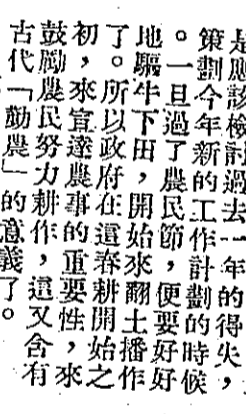 是應該檢討過去一年的得失，
策劃今年新的工作計劃的時候
。一旦過了農民節，便要好好
地驅牛下田，開始來翻土播作
了。所以政府在這春耕開始之
初，來宣達農事的重要性，來
鼓勵農民努力耕作，這又含有
古代「勸農」的意義了。